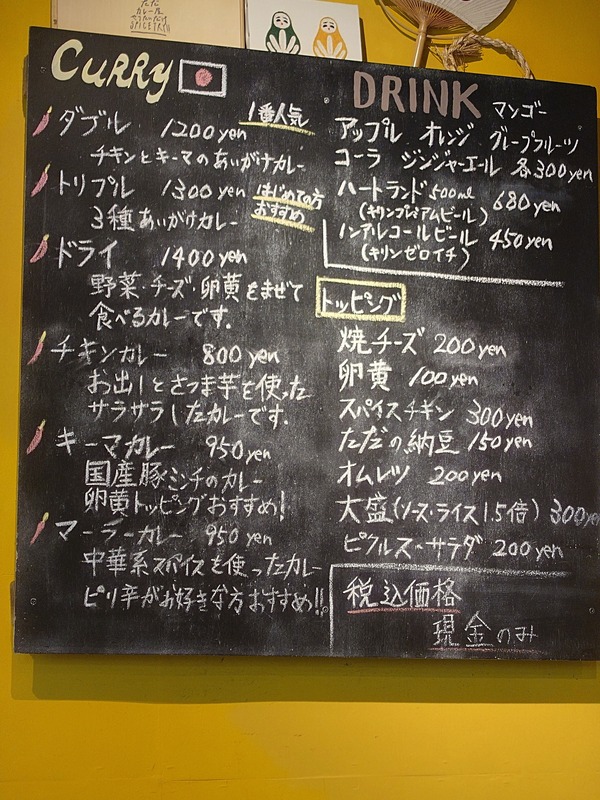 CURRY
ダブル 1200yen 1番人気
チキンとキーマのあいがけカレー
トリプル 1300yen はじめての方
おすすめ
3種あいがけカレー
ドライ 1400yen
野菜・チーズ・卵黄をまぜて
食べるカレーです.
チキンカレー 800yen
お出しとさつま芋を使った
サラサラしたカレーです.
キーマカレー 950yen
国産豚ミンチのカレー
卵黄トッピングおすすめ!
マーラーカレー 950yen
中華系スパイスを使ったカレー
ピリ辛がお好きな方おすすめ!!
DRINK マンゴー
アップル オレンジ グレープフルーツ
コーラ ジンジャーエール 各300yen
ハートランド500ml 680yen
(キリンプレミアムビール)
ノンアルコールビール 450yen
(キリンゼロイチ)
トッピング
焼チーズ 200yen
卵黄 100yen
スパイスチキン 300yen
ただの納豆 150yen
オムレツ 200yen
大盛(ソース・ライス1.5倍) 300yen
ピクルス・サラダ 200yen
税込価格
現金のみ